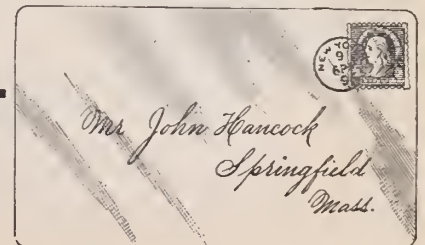 NEW YO
9
Mr John Hancock
Springfield
Mass.